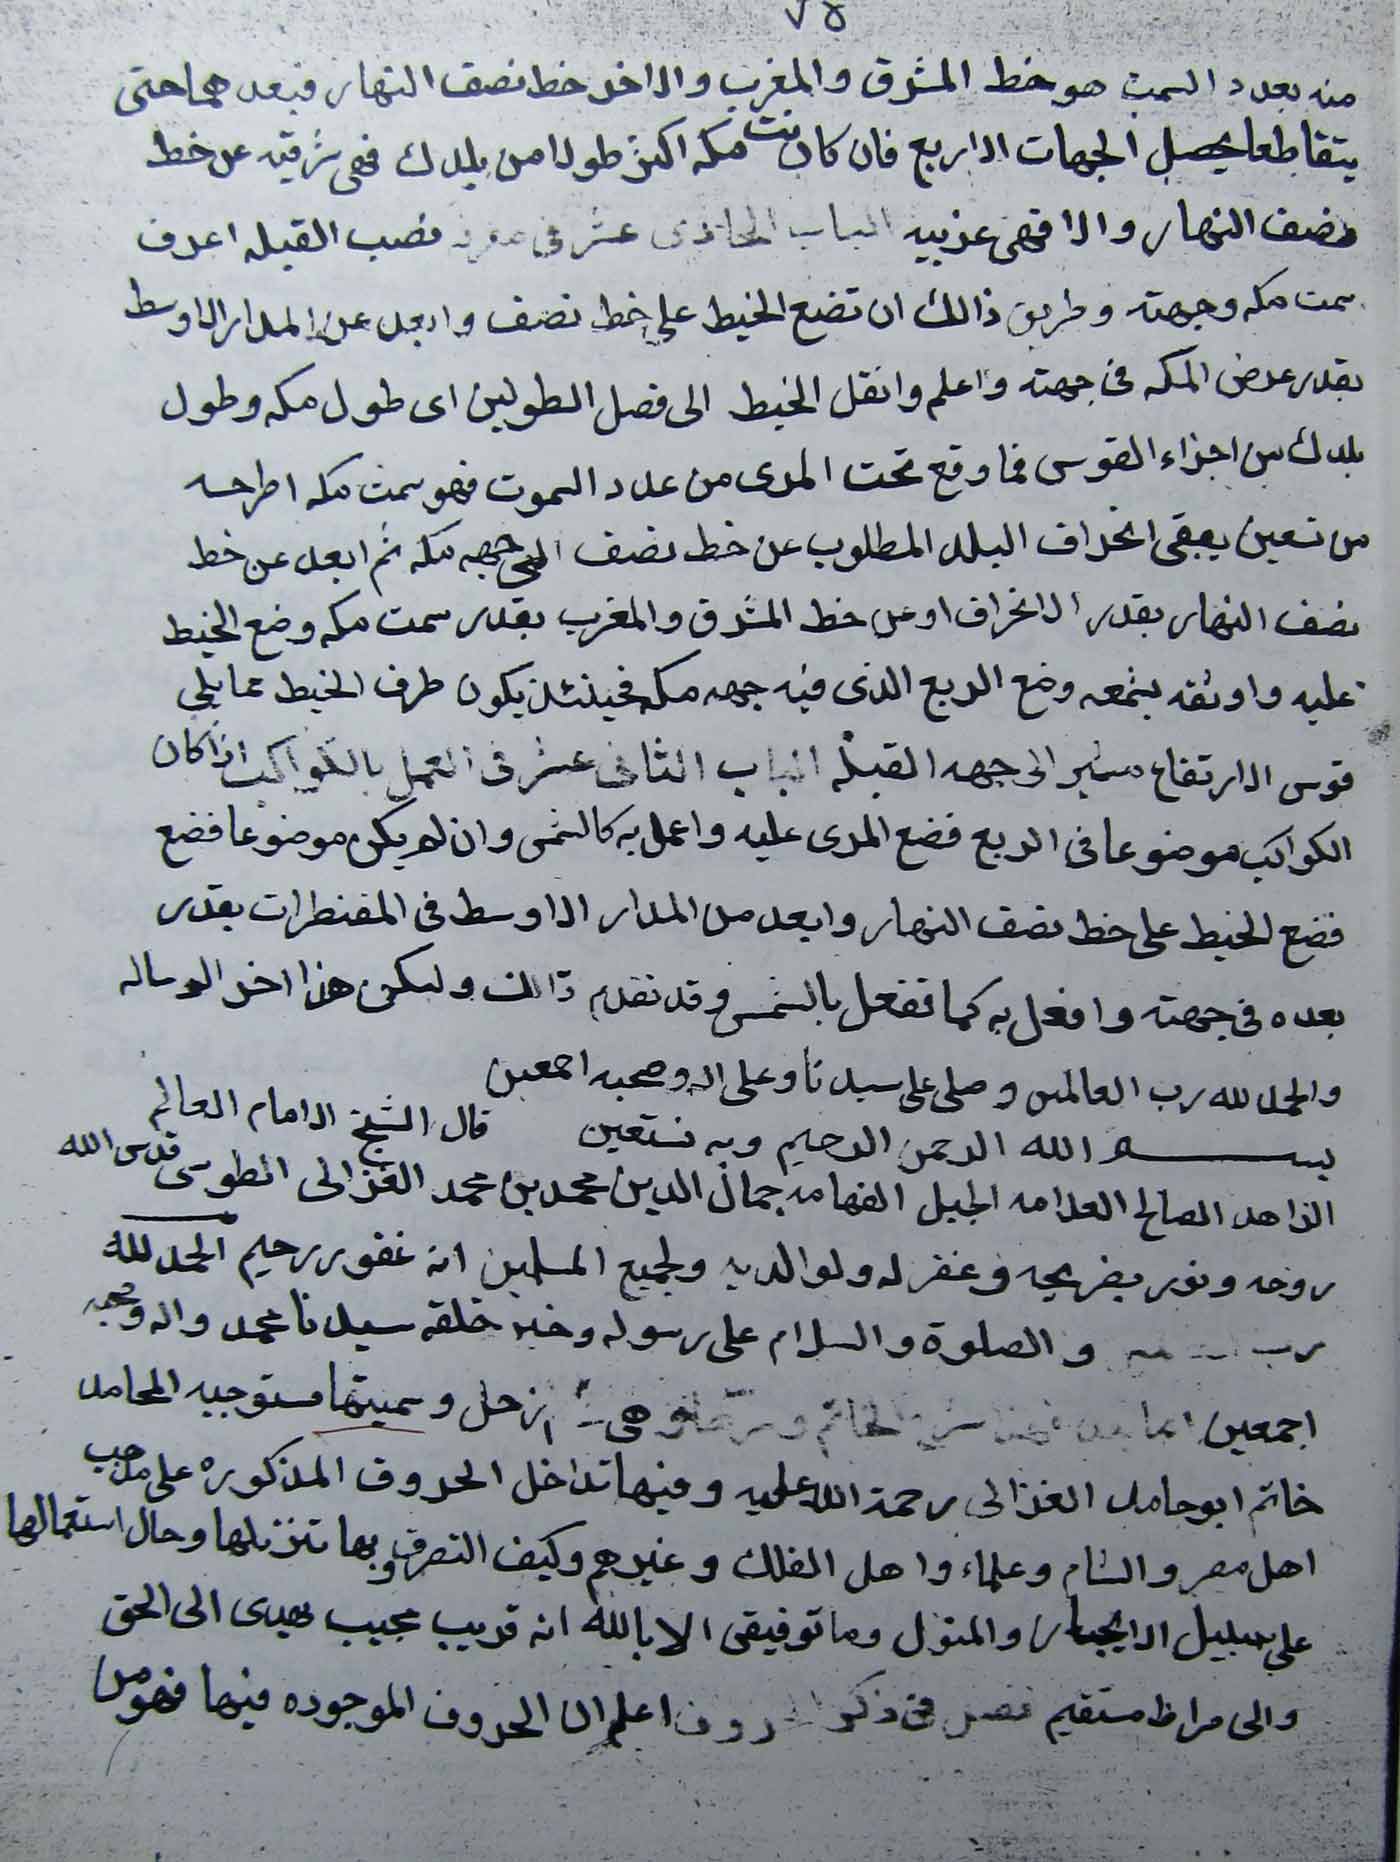 ٧٥
منه بعدد السمت هو خط المشرق والمغرب والاخر خط نصف النهار فبعدهما حتى
يتقاطعا يحصل الجهات الاربع فان كانت مكه اكثر طولا من بلدك فهى شرقيه عن خط
نصف النهار والا فهى غربيه الباب الحادى عشر فى معرفة نصب القبله اعرف
سمت مكه وجهته وطريق ذالك ان تضع الخيط على خط نصف وابعد عن المدار الاوسط
بقدر عرض المكه فى جهته واعلم وانقل الخيط الى فضل الطولين اى طول مكه وطول
بلدك من اجزاء القوس فما وقع تحت المرى من عدد السموت فهو سمت مكه اطرحه
من تسعين يبقى انحراف البلد المطلوب عن خط نصف الى جهه مكه ثم ابعد عن خط
نصف النهار بقدر الانحراف او عن خط المشرق والمغرب بقدر سمت مكه وضع الخيط
عليه واوثقه بشمعه وضع الربع الذى فيه جهه مكه فحينئذ يكون طرف الخيط مما يلى
قوس الارتفاع الى جهه القبله الباب الثانى عشر فى العمل بالكواكب اذا كان
الكواكب موضوعا فى الربع فضع المرى عليه واعمل به كالشمس وان لم يكن موضوعا فضع
فضع الخيط على خط نصف النهار وابعد من المدار الاوسط فى المقنطرات بقدر
بعده فى جهته وافعل به كما تفعل بالشمس وقد تقدم ذالك وليكن هذا اخر الرساله
والحمد لله رب العالمين وصلى على سيدنا وعلى اله وصحبه اجمعين
بسم الله الرحمن الرحيم وبه نستعين قال الشيخ الامام العالم
الزاهد الصالح العلامه الجليل الفهامه جمال الدين محمد بن محمد الغزالى الطوسى قدس الله
روحه ونور بضريحه وغفر له ولوالديه ولجميع المسلمين انه غفور رحيم الحمد لله
رب والصلوة والسلام على رسوله وخير خلقه سيدنا محمد واله وصحبه
اجمعين اما بعد فهذا شرح الخاتم وهى زحل وسميتها مستوجبه المحامد
خاتم ابو حامد الغزالى رحمة الله عليه وفيها تداخل الحروف المذكوره على مذهب
اهل مصر والشام وعلماء واهل الفلك وغيرهم وكيف التصرف وبها تنزيلها وحال استعمالها
على سبيل الايجاز والمنول وما توفيقى الا بالله انه قريب مجيب يهدى الى الحق
والى صراط مستقيم فصل فى ذكر الحروف اعلم ان الحروف الموجوده فيها فهو من